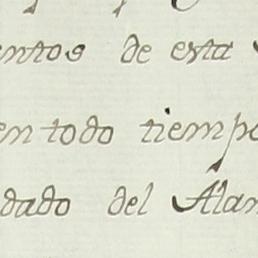 entos de esta
en todo tiempo
dado del Alam